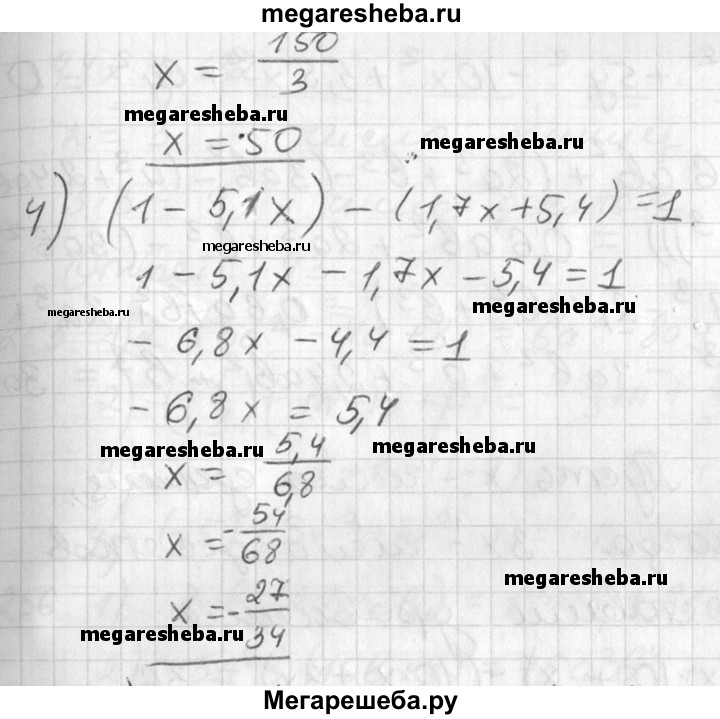 megaresheba.ru
x = 150/3
megaresheba.ru
x = 50
megaresheba.ru
4) (1 - 5,1x) - (1,7x + 5,4) = 1
megaresheba.ru
1 - 5,1x - 1,7x - 5,4 = 1
megaresheba.ru
megaresheba.ru
- 6,8x - 4,4 = 1
- 6,8x = 5,4
megaresheba.ru
megaresheba.ru
x = 5,4/6,8
x = - 54/68
megaresheba.ru
x = - 27/34
megaresheba.ru
Мегарешеба.ру